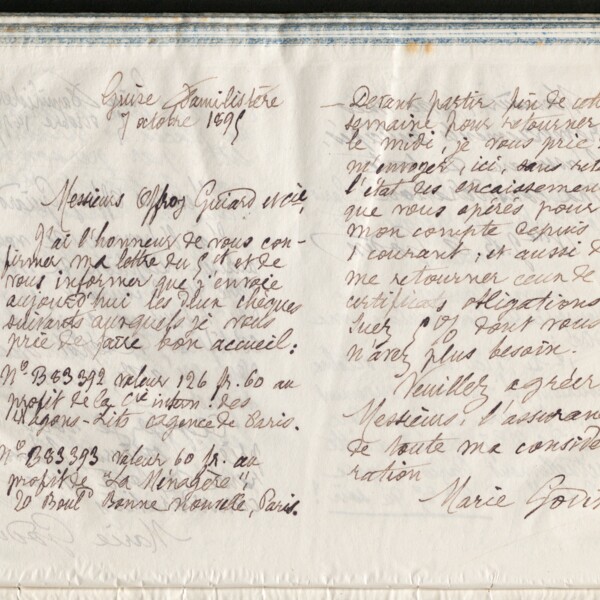 Guise Familistère
7 octobre 1895
Messieurs Offroy Guiard et Cie,
J'ai l'honneur de vous con-
firmer ma lettre du 5 ct et de
vous informer que j'envoie
aujourd'hui les deux chèques
suivants auxquels je vous
prie de faire bon accueil:
No B83392 valeur 126 fr. 60 au
profit de la Cie intern. des
Wagons-Lits agence de Paris.
No B83393 valeur 60 fr. au
profit de "La Ménagère"
20 Boul. Bonne Nouvelle, Paris.
— Devant partir fin de cette
semaine pour retourner
le midi, je vous prie
m'envoyer, ici, sans
l'état des encaissemen
que vous opérés pour
mon compte depuis
1 courant; et aussi de
me retourner ceux de
certificats obligations
Suez 5% dont vous
n'avez plus besoin.
Veuillez agréer
Messieurs, l'assuran
de toute ma consid
ration
Marie Godin